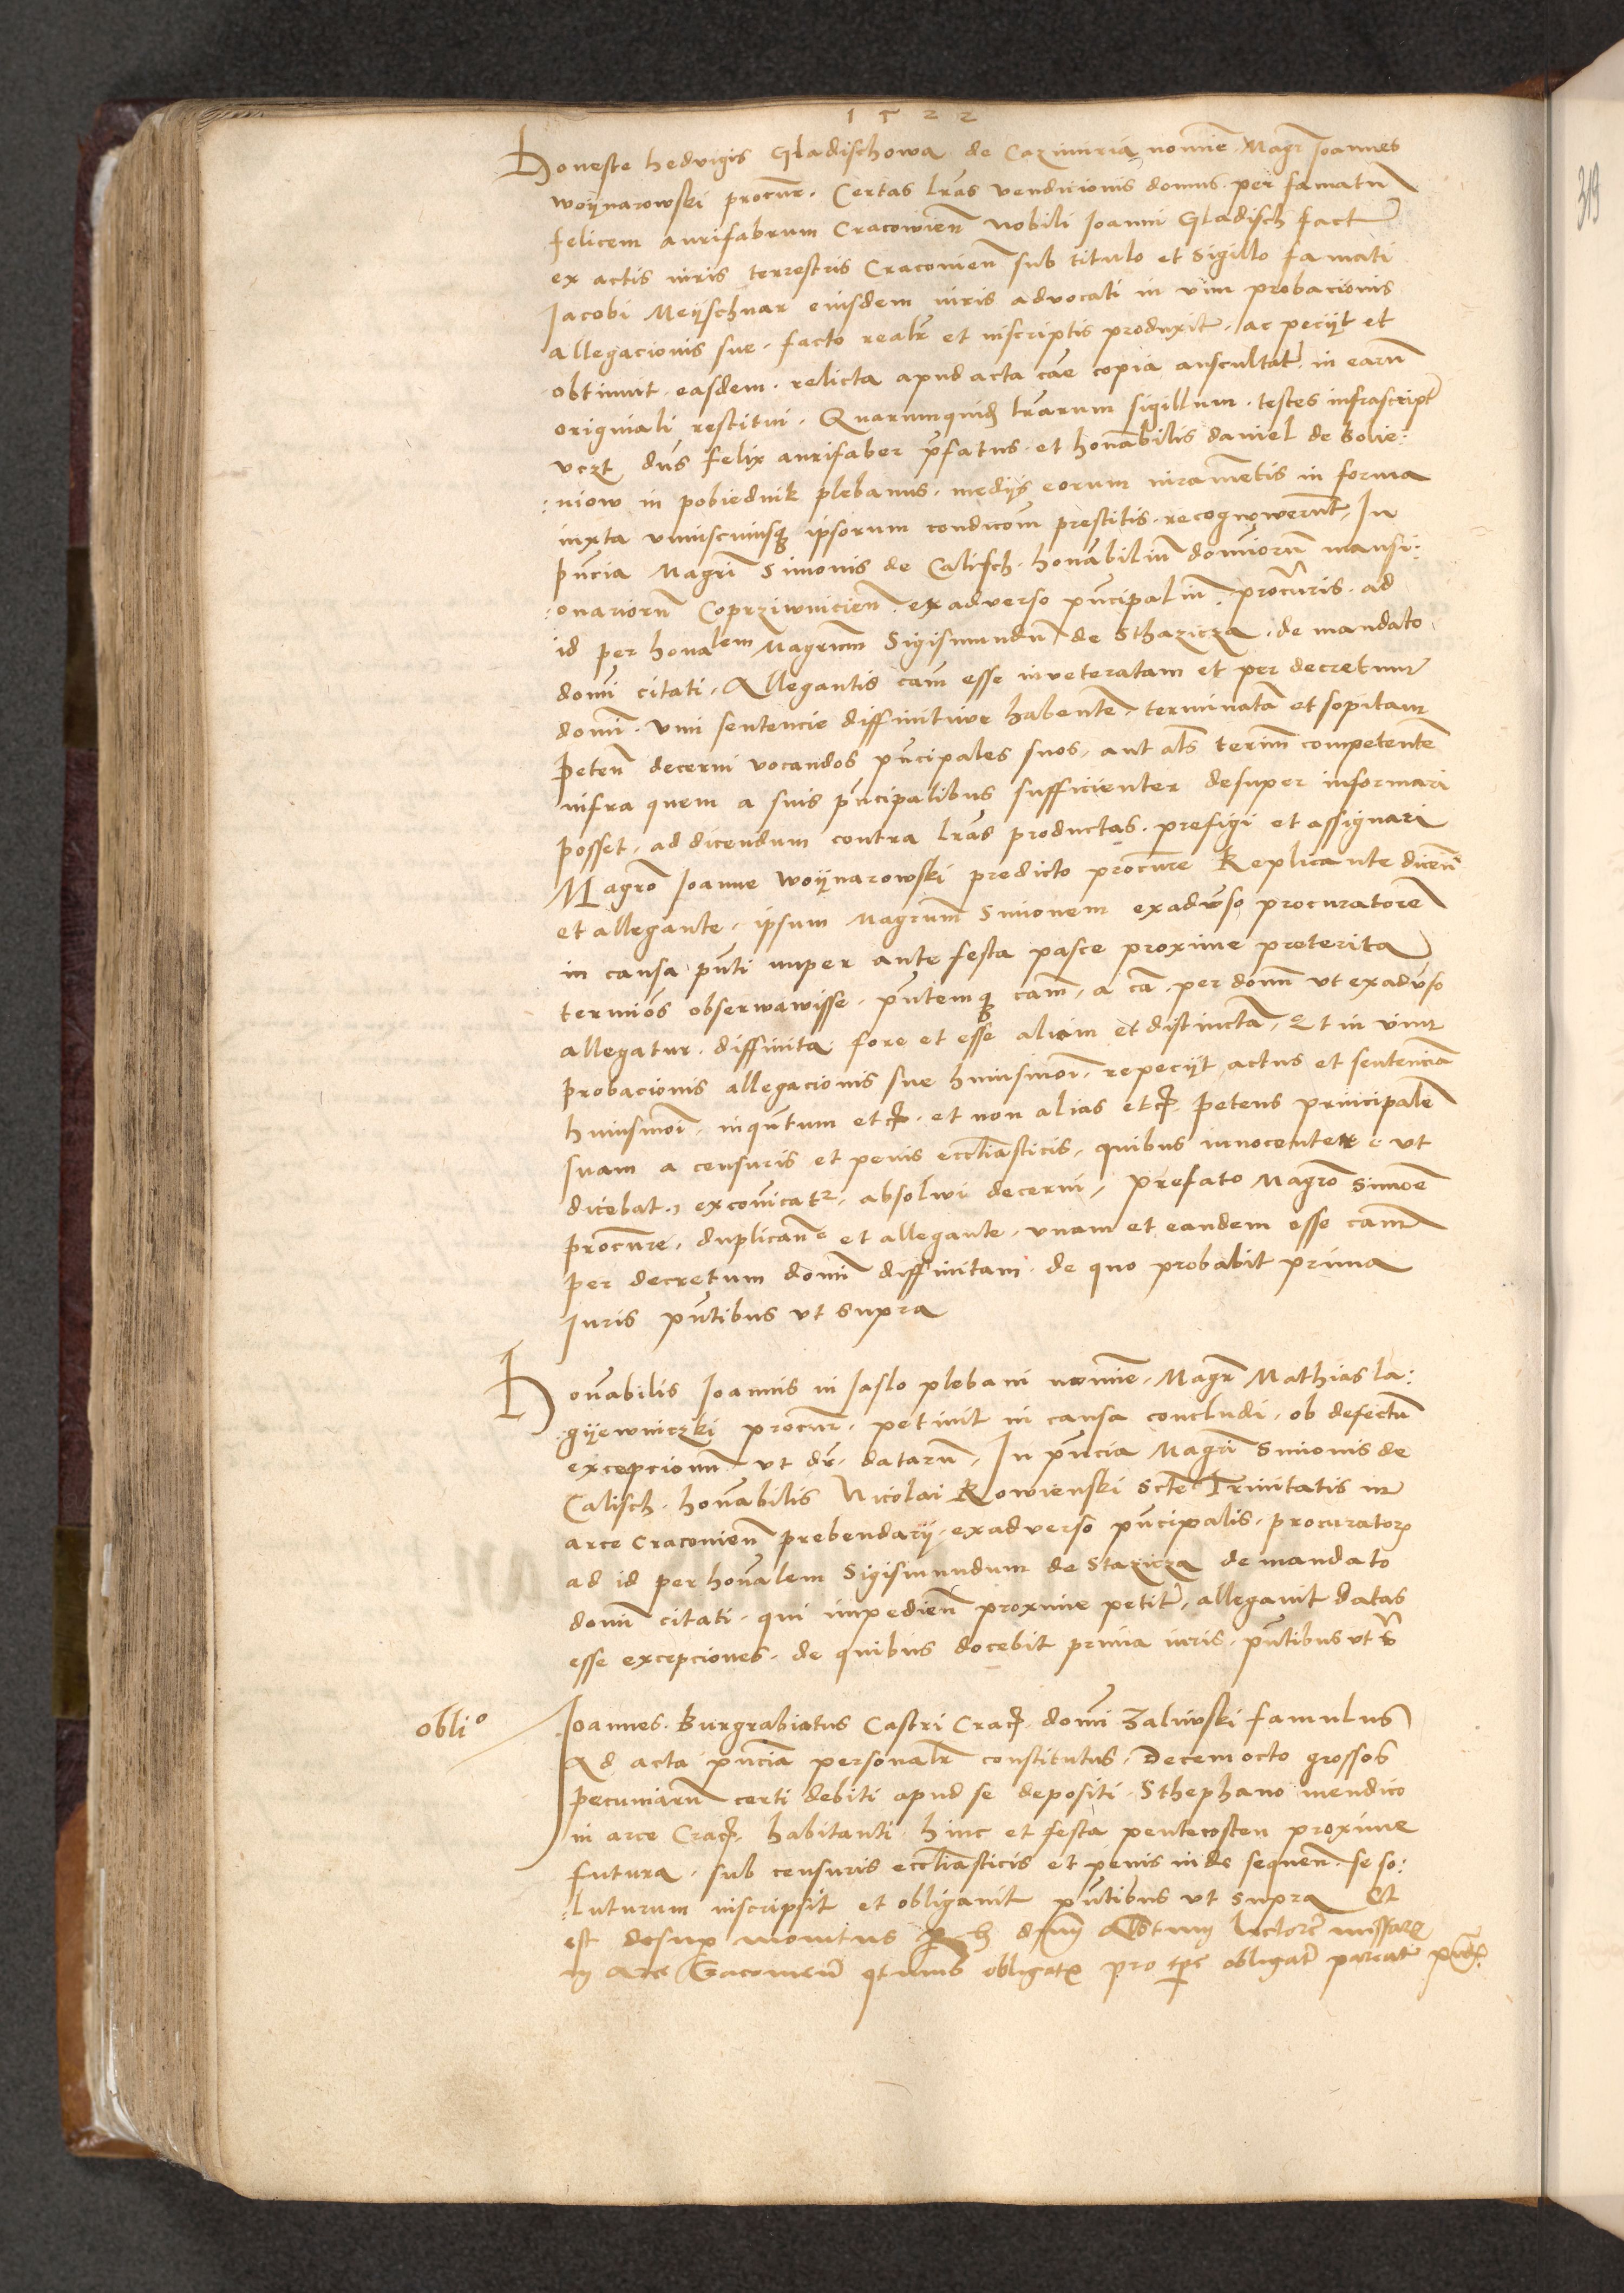 1522
Honeste hedvigis Gladischowa de Cazimiria nomine Magr Joannes
woÿnarowski procur. Certas lras vendicionis domus per famatu
felicem aurifabrum Cracowien Nobili Joanni Gladisch fact
ex actis iuris terrestris Cracovien sub titulo et Sigillo famati
Jacobi Meÿschnar eiusdem iuris advocati in vim probacionis
allegacionis sue facto realr et inscriptis produxit. ac peciÿt et
obtinuit easdem. relicta apud acta cae copia auscultat in earu
originali restitui. Quarumquid lrarum sigillum. testes infrascript
vczt dns felix aurifaber pfatus. et honabilis daniel de Bolie:
:niow in pobiednik plebanus. medÿs eorum iurametis in forma
iuxta vniuscuiusq ipsorum condicom prestitis. recognowerunt. In
pncia Magri Simonis de Calisch. honabiliu domiorum mansi:
:onarioru Coprziwnicien. ex adverso pncipaliu. procuris. ad
id per honalem Magrum Sigismundu de Sthazicza. de mandato
domi citati. Allegantis cam esse inveteratam et per decretum
domi. vim sentencie diffinitiue habente. terminata et sopitam
peten decerni vocandos pncipales suos. aut als terim competente
infra quem a suis pncipalibus sufficienter desuper informari
posset. ad dicendum contra lras productas. prefigi et assignari
Magro Joanne woÿnarowski predicto procure Replicante dicen
et allegante. ipsum Magrum Simonem exadvso procuratore
in causa pnti nuper ante festa pasce proxime preterita
termios obserwawisse. pntemq cam. a ca per donm vt exadvso
allegatur. diffinita fore et esse aliam et distincta. Et in vim
probacionis allegacionis sue huiusmoi. repeciÿt actus et sentencia
huiusmoi. inqntum etc. et non alias etc. petens principale
suam a censuris et penis eccliasticis. quibus innocenter vt
dicebat. excoicat. absolwi decerni. prefato Magro Simoe
procure. duplican et allegante. vnam et eandem esse cam
per decretum domi diffinitam. de quo probabit prima
Juris pntibus vt supra
Honabilis Joannis in Jaslo plebani nomine. Magr Mathias la:
:gÿewniczki procur. petiuit in causa concludi. ob defectu
excepcionu vt dr. dataru. In pncia Magri Simonis de
Calisch. honabilis Nicolai Rowienski Scte Trinitatis in
arce Cracovien prebendarÿ. exadverso pncipalis. procurator
ad id per honalem Sigismundum de Stazicza de mandato
domi citati. qui impedien proxime petit. allegauit datas
esse excepciones. de quibus docebit prima iuris. pntibus vt s
oblio
Joannes. Burgrabiatus Castri Crac. domi Zaliwski famulus
Ad acta pncia personalr constitutus. Decemocto grossos
pecuniaru certi debiti apud se depositi. Sthephano mendico
in arce Crac. habitanti hinc et festa pentecosten proxime
futura. sub censuris eccliasticis et penis inde sequen. se so:
:luturum inscripsit et obligauit pntibus vt supra Et
est desup monitus p h
in Arce Cracovien obligat pro obligat pareat